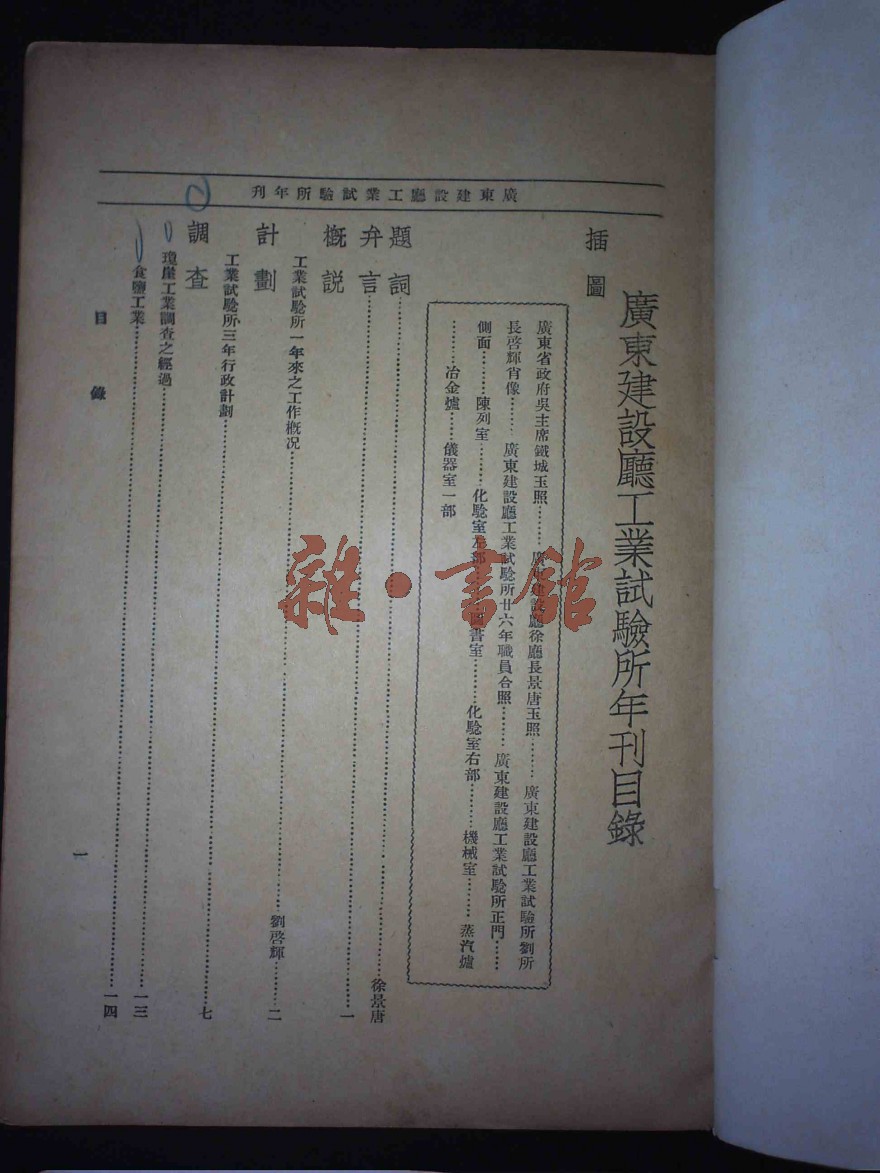 廣東建設廳工業試驗所年刊
廣東建設廳工業試驗所年刊目錄
插圖
廣東省政府吳主席鐵城玉照………廣東建設廳徐廳長景唐玉照………廣東建設廳工業試驗所劉所
長啓輝肖像………廣東建設廳工業試驗所廿六年職員合照………廣東建設廳工業試驗所正門………
側面………陳列室………化驗室左部………圖書室………化驗室右部………機械室………蒸汽爐
………冶金爐………儀器室一部
題詞
弁言………徐景唐
概説………一
工業試驗所一年來之工作概況………劉啓輝………二
計劃
工業試驗所三年行政計劃………七
調查
瓊崖工業調查之經過………一三
食鹽工業………一四
目錄
一
雜·書館